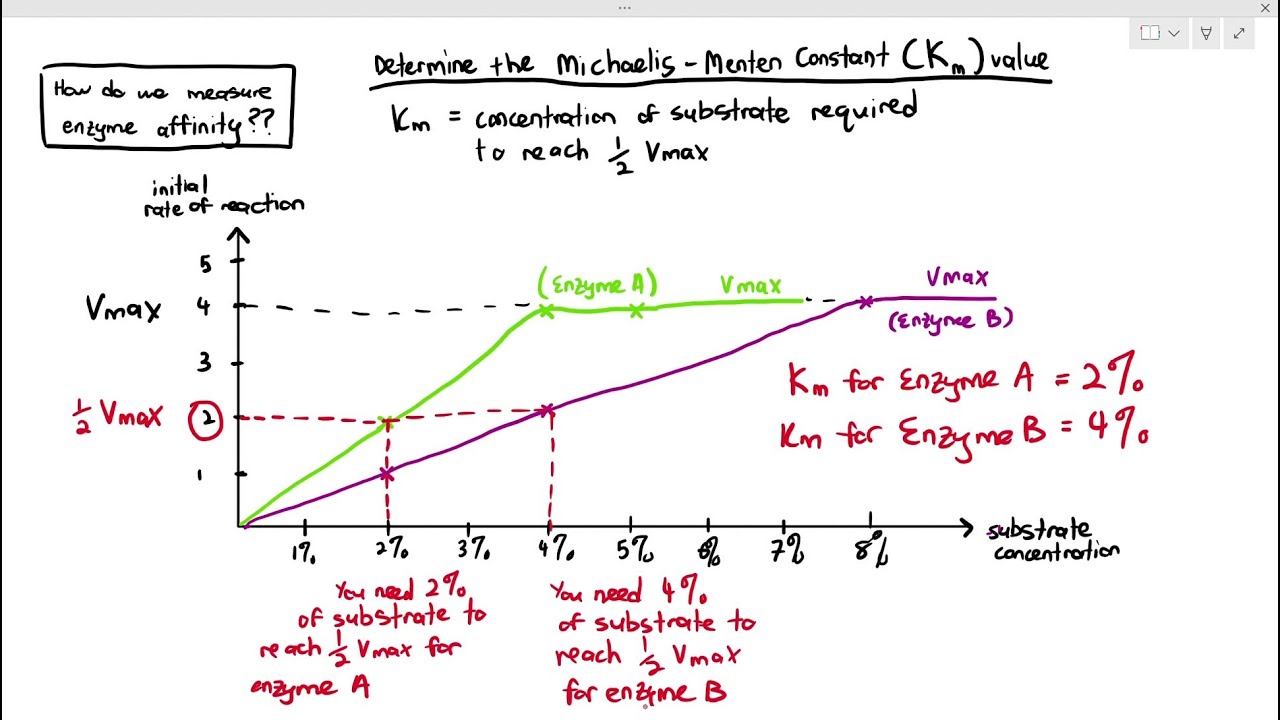 How do we measure
enzyme affinity??
Determine the Michaelis - Menten Constant (Km) value
Km = concentration of substrate required
to reach 1/2 Vmax
initial
rate of reaction
5
Vmax 4
3
1/2 Vmax 2
1
(Enzyme A) Vmax
Vmax
(Enzyme B)
Km for Enzyme A = 2%
Km for Enzyme B = 4%
1% 2% 3% 4% 5% 6% 7% 8%
substrate
concentration
You need 2%
of substrate to
reach 1/2 Vmax for
enzyme A
You need 4%
of substrate to
reach 1/2 Vmax
for enzyme B